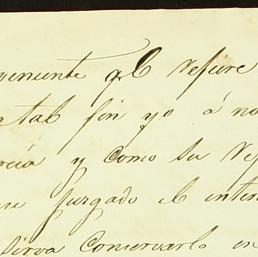 veniente q.e el refiere
tal fin yo á no
rcia y como su rep
juzgado el inter
sirva conservarlo en